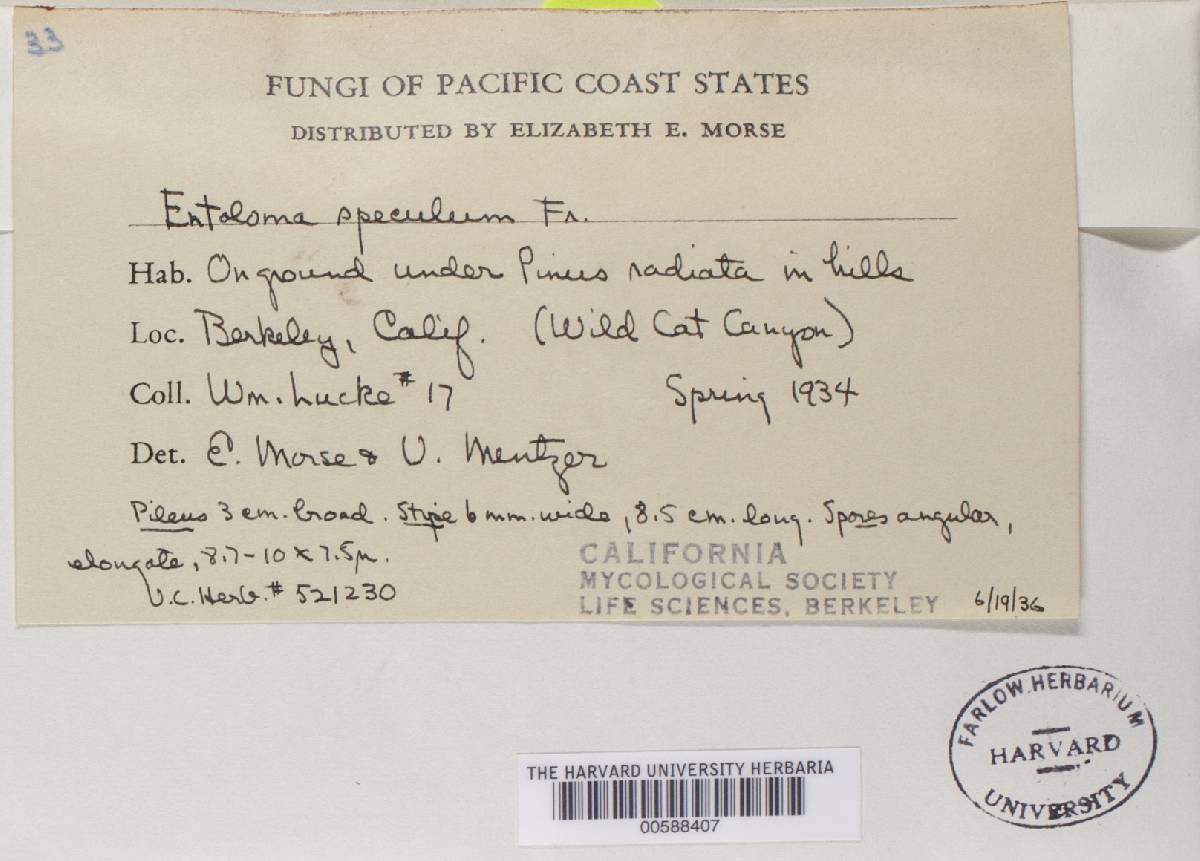 33
FUNGI OF PACIFIC COAST STATES
DISTRIBUTED BY ELIZABETH E. MORSE
Entoloma speculum Fr.
Hab. On ground under Pinus radiata in hills
Loc. Berkeley, Calif. (Wild Cat Canyon)
Coll. Wm. Lucke #17 Spring 1934
Det. E. Morse & V. Mentzer
Pileus 3 cm. broad. Stipe 6 mm. wide, 8.5 cm. long. Spores angular,
elongate, 8.7-10 x 7.5µ.
U.C. Herb. # 521230
CALIFORNIA
MYCOLOGICAL SOCIETY
LIFE SCIENCES, BERKELEY
6/19/36
FARLOW HERBARIUM
HARVARD
UNIVERSITY
THE HARVARD UNIVERSITY HERBARIA
00588407